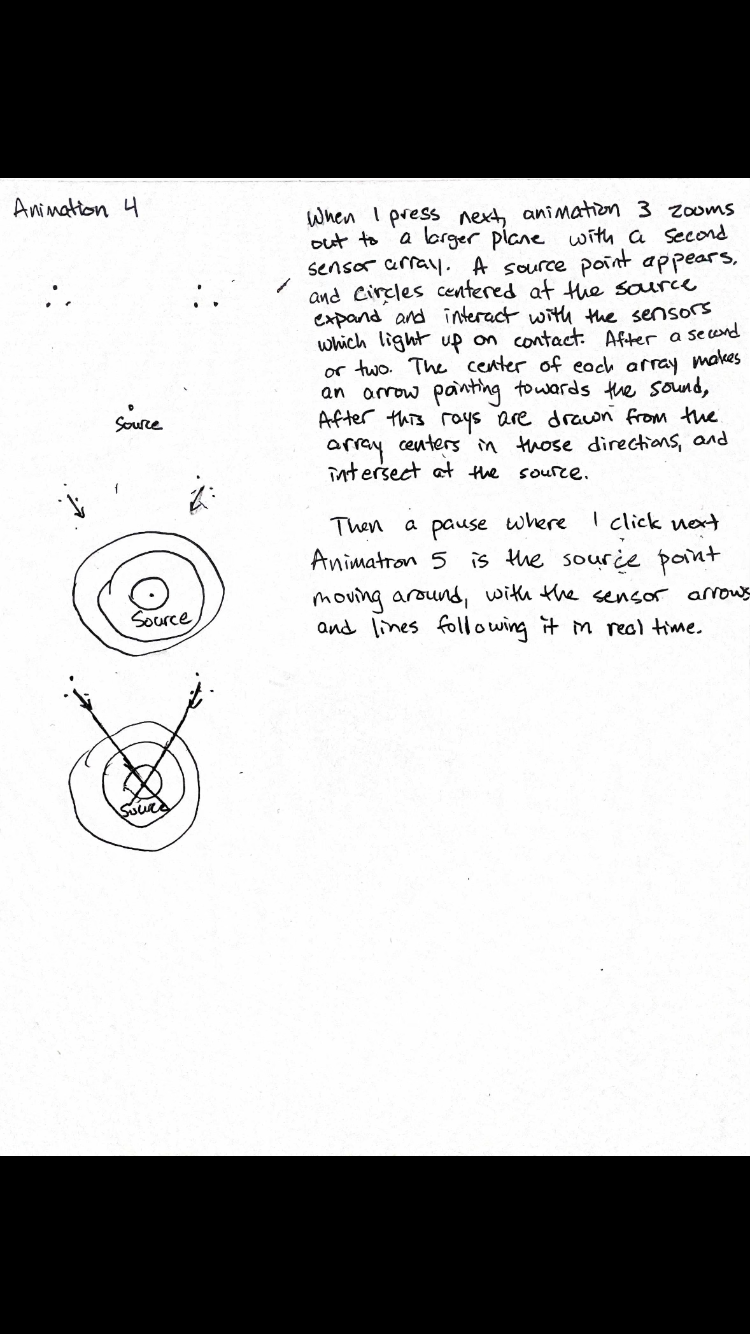 Animation 4
When I press next, animation 3 zooms
out to a larger plane with a second
sensor array. A source point appears,
and circles centered at the source
expand and interact with the sensors
which light up on contact. After a second
or two. The center of each array makes
an arrow pointing towards the sound,
After this rays are drawn from the
array centers in those directions, and
intersect at the source.
Then a pause where I click next
Animation 5 is the source point
moving around, with the sensor arrows
and lines following it in real time.
Source
Source
Source